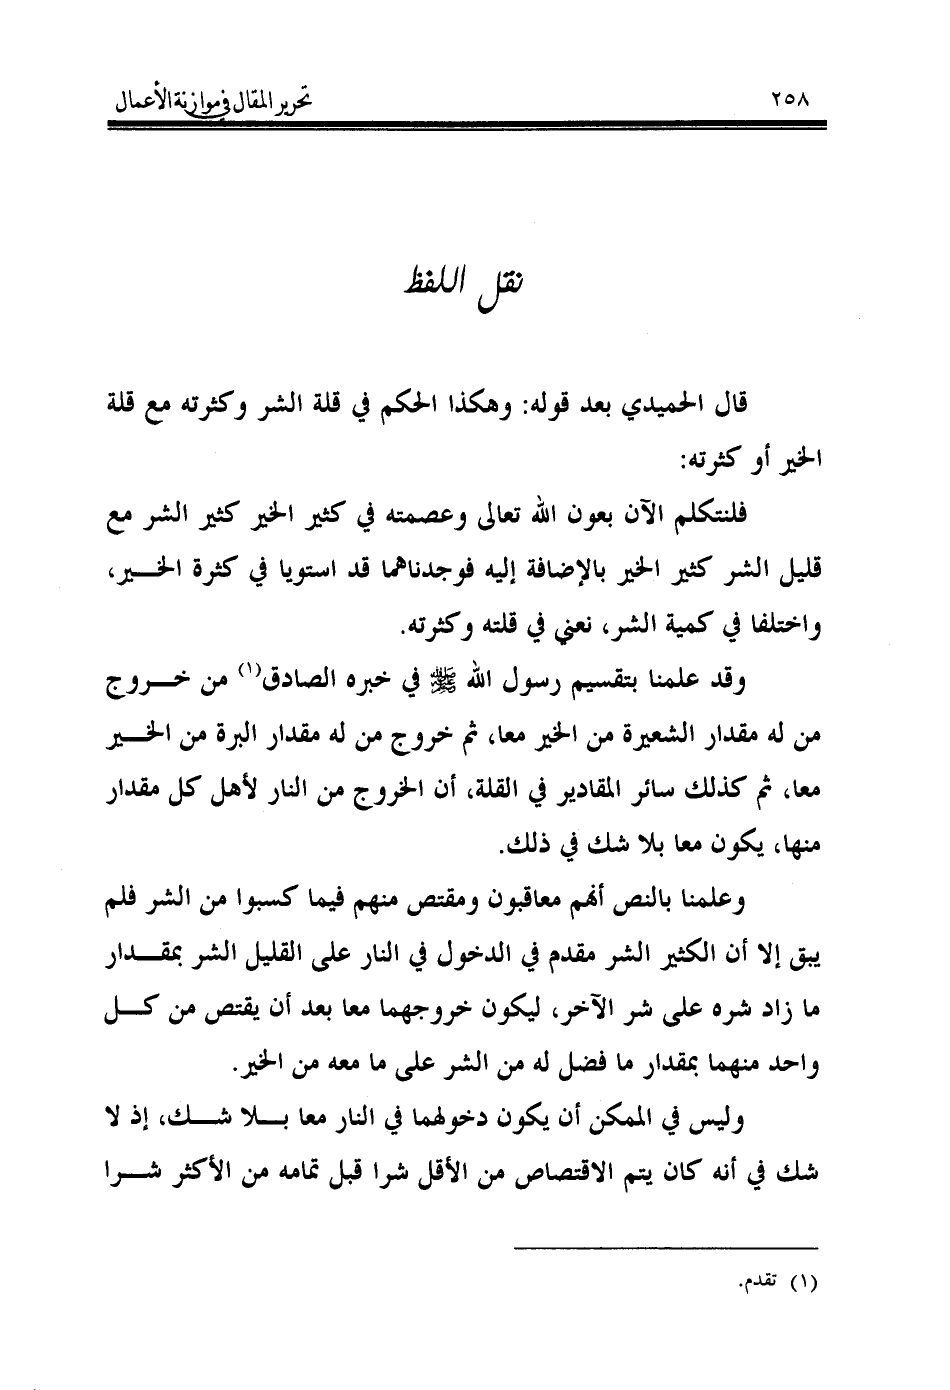 ٢٥٨
تحرير المقال في موازنة الأعمال
نقل اللفظ
قال الحميدي بعد قوله: وهكذا الحكم في قلة الشر وكثرته مع قلة
الخير أو كثرته:
فلنتكلم الآن بعون الله تعالى وعصمته في كثير الخير كثير الشر مع
قليل الشر كثير الخير بالإضافة إليه فوجدناهما قد استويا في كثرة الخير،
واختلفا في كمية الشر، نعني في قلته وكثرته.
وقد علمنا بتقسيم رسول الله ﷺ في خبره الصادق(١) من خروج
من له مقدار الشعيرة من الخير معا، ثم خروج من له مقدار البرة من الخير
معا، ثم كذلك سائر المقادير في القلة، أن الخروج من النار لأهل كل مقدار
منها، يكون معا بلا شك في ذلك.
وعلمنا بالنص أنهم معاقبون ومقتص منهم فيما كسبوا من الشر فلم
يبق إلا أن الكثير الشر مقدم في الدخول في النار على القليل الشر بمقدار
ما زاد شره على شر الآخر، ليكون خروجهما معا بعد أن يقتص من كل
واحد منهما بمقدار ما فضل له من الشر على ما معه من الخير.
وليس في الممكن أن يكون دخولهما في النار معا بلا شك، إذ لا
شك في أنه كان يتم الاقتصاص من الأقل شرا قبل تمامه من الأكثر شرا
(١) تقدم.